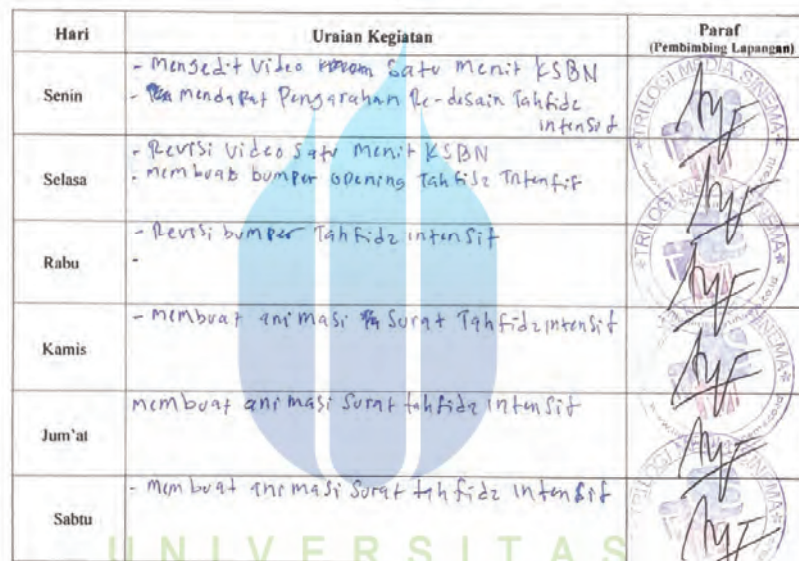 Hari Uraian Kegiatan Paraf
(Pembimbing Lapangan)
Senin
- Mengedit Video Satu Menit KSBN
- Mendapat Pengarahan Re-desain Tahfidz
intensif
Selasa
- Revisi Video Satu Menit KSBN
- Membuat bumper opening Tahfidz Intensif
Rabu
- Revisi bumper Tahfidz intensif
-
Kamis
- Membuat animasi Surat Tahfidz intensif
Jum'at
membuat animasi Surat tahfidz intensif
Sabtu
- Membuat animasi Surat tahfidz intensif
TRILOGI MEDIA SINEMA
UNIVERSITAS